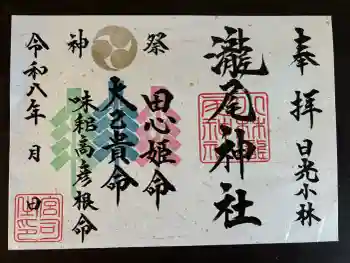 奉拝
日光小林
瀧尾神社
祭神
田心姫命
大己貴命
味耜高彦根命
令和八年 月 日